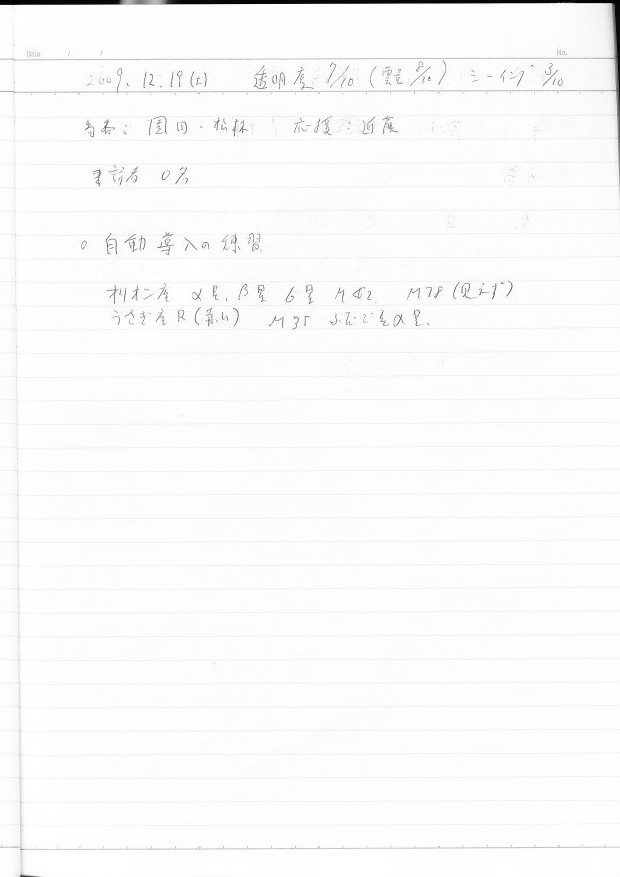 Date / / No.
2009. 12. 19 (土) 透明度 7/10 (雲量 8/10) シーイング 3/10
当番: 園田・松林 応援: 近藤
来訪者 0名
○ 自動導入の練習
オリオン座 α星. β星 σ星 M42. M78 (見えず)
うさぎ座R (赤い) M35 ふたご座α星.